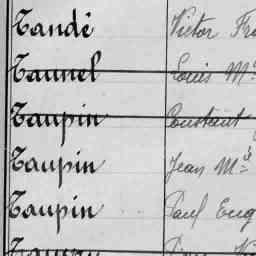 Tandé Victor
Taunel Louis M
Taupin Constant
Taupin Jean Mie
Taupin Paul Eug